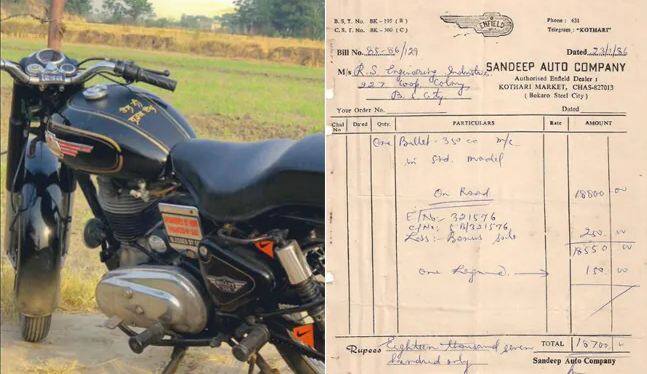 B. S. T. No. BK-195 ( R )
C. S. T. No. BK-300 ( C )
ENFIELD
Phone : 431
Telegram : "KOTHARI"
Bill No. 85-86/129
Dated 23/1/86
M/s R.S. Engineering Industries
SANDEEP AUTO COMPANY
Authorised Enfield Dealer :
KOTHARI MARKET, CHAS-827013
( Bokaro Steel City )
Coop Colony
B. S. City
Your Order No.
Dated
Chal No
Dated
Qnty.
PARTICULARS
Rate
AMOUNT
One Bullet - 350 cc m/c
in Std. model
On Road 18800 00
E/No. 321576
C/No: 5B/321576
Less:- Bonus 250 00
18550 00
One 150 00
Rupees Eighteen thousand seven
hundred only
TOTAL 18700
Sandeep Auto Company